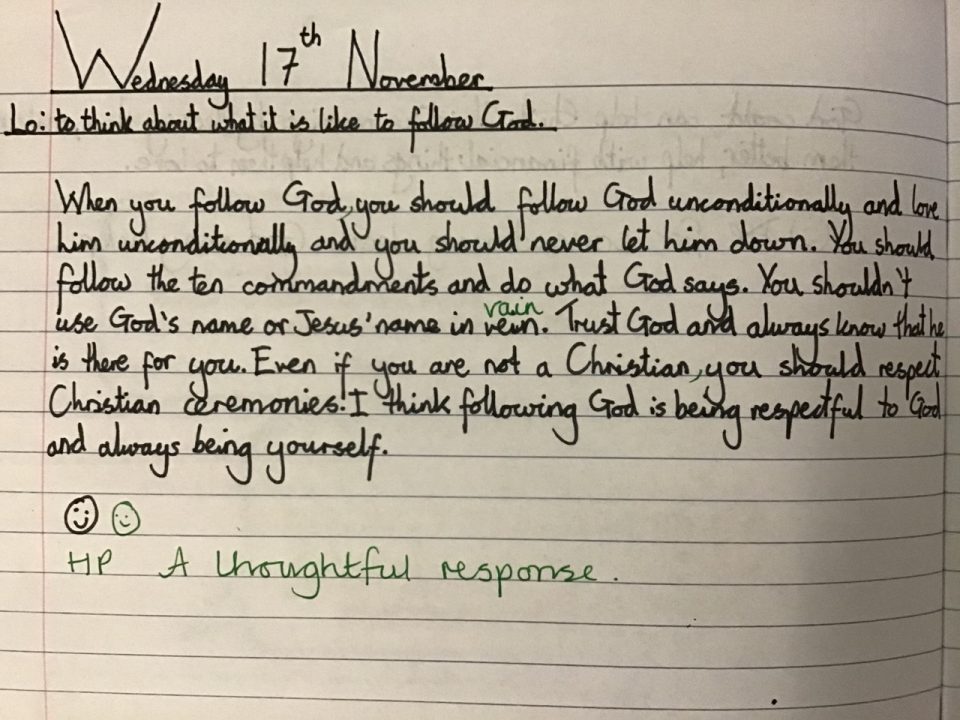 Wednesday 17th November
Lo: to think about what it is like to follow God.
When you follow God, you should follow God unconditionally and love
him unconditionally and you should never let him down. You should
follow the ten commandments and do what God says. You shouldn't
vain
use God's name or Jesus' name in vein. Trust God and always know that he
is there for you. Even if you are not a Christian, you should respect
Christian ceremonies! I think following God is being respectful to God
and always being yourself.
HP A thoughtful response.